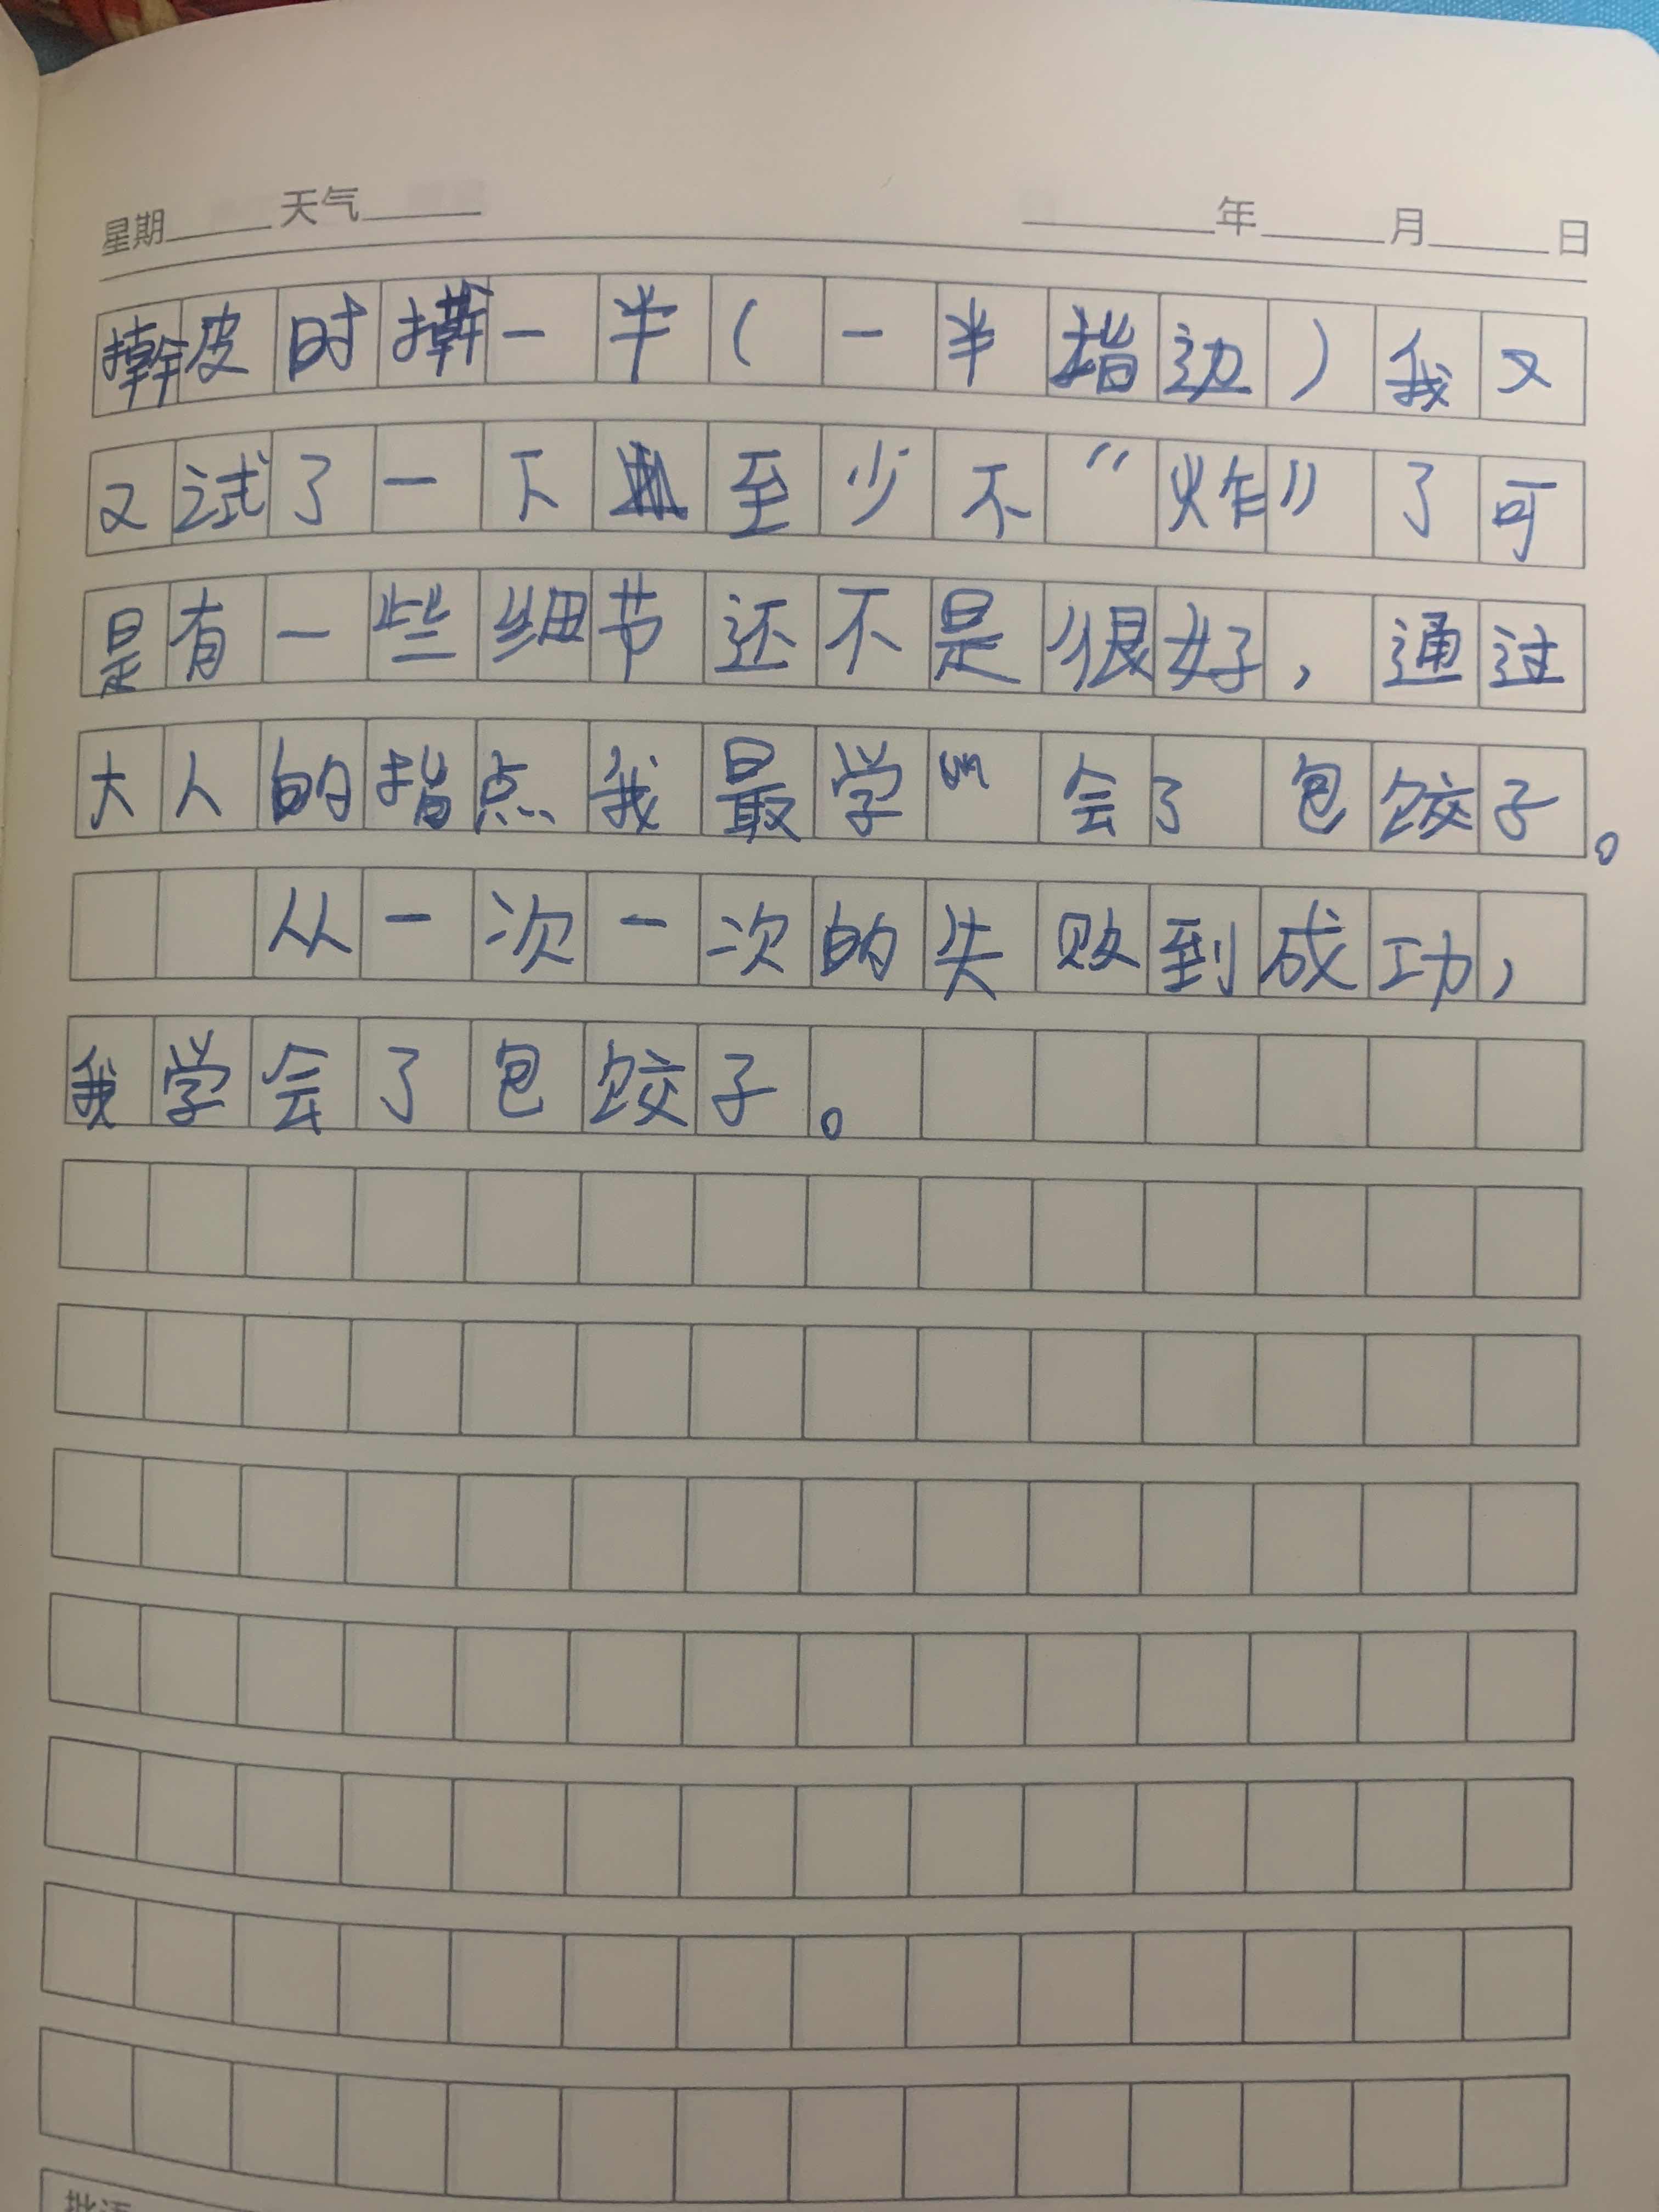 星期 天气 年 月 日
擀皮时擀一半(一半指边)我又
又试了一下至少不“炸”了可
是有一些细节还不是很好,通过
大人的指点我最学会了包饺子。
从一次一次的失败到成功,
我学会了包饺子。